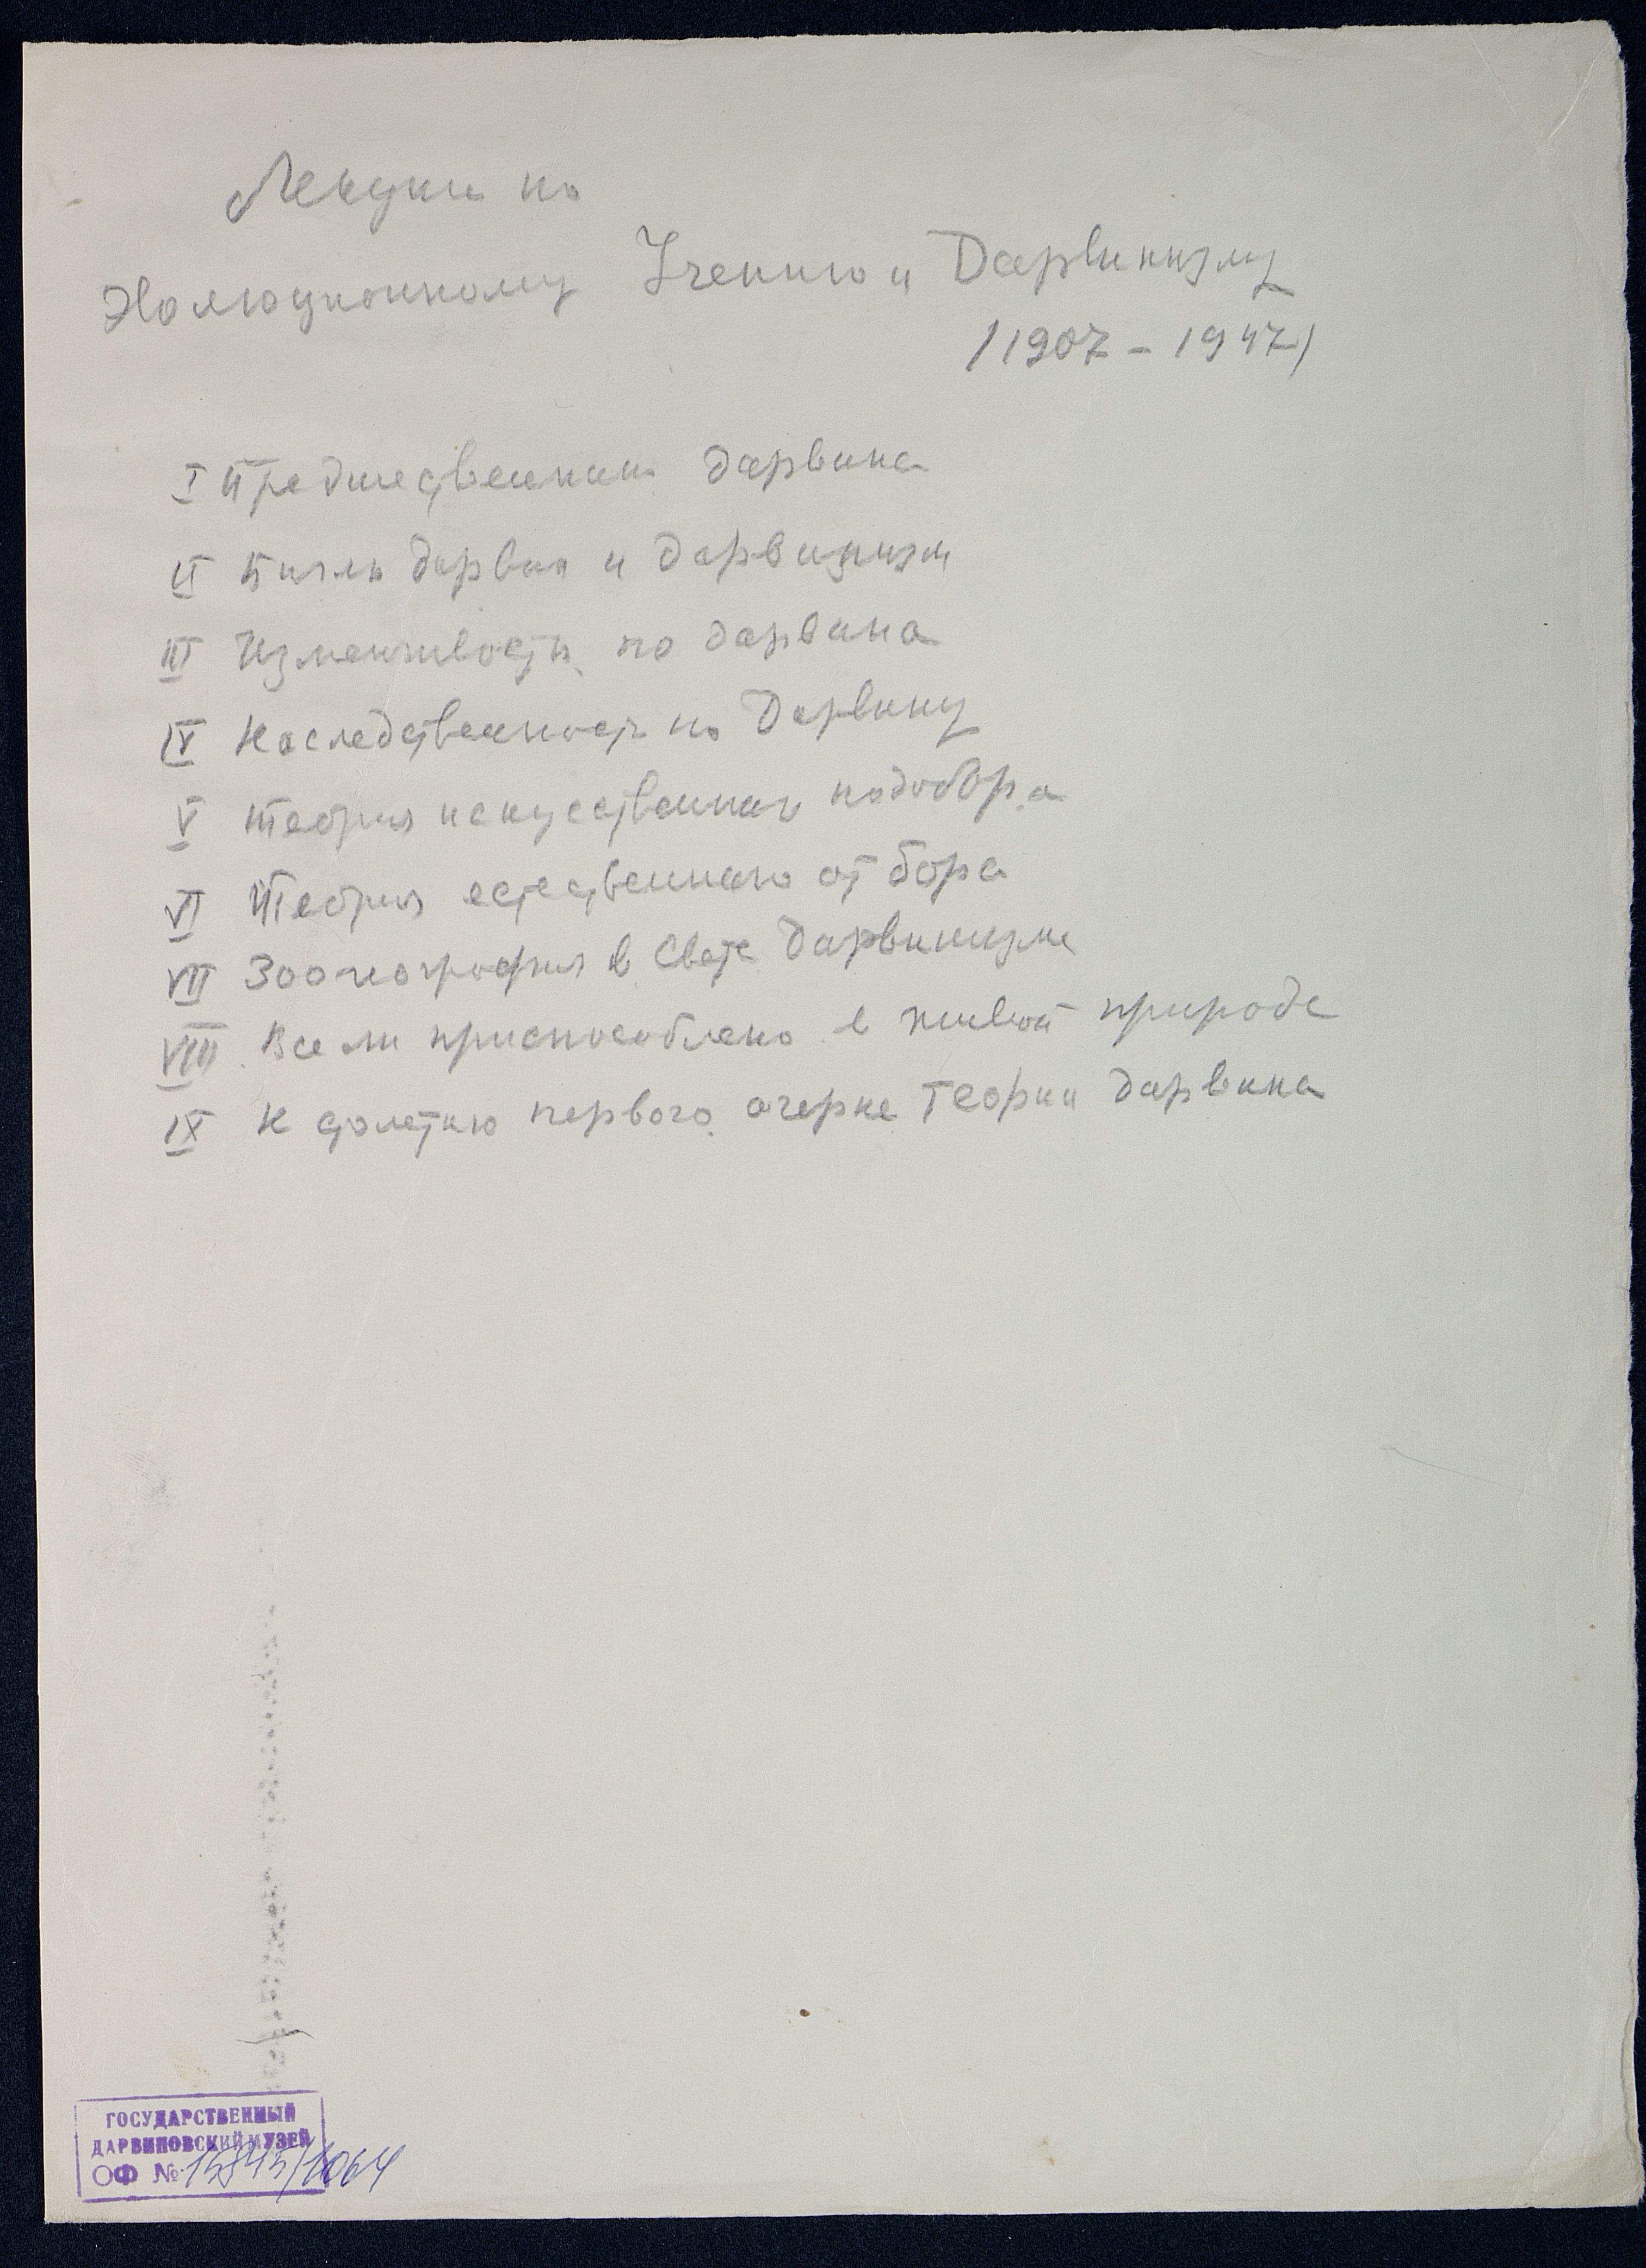 Лекции по
Эволюционному Учению и Дарвинизму
/1907 - 1947/
I Предшественники Дарвина
II Чарльз Дарвин и дарвинизм
III Изменчивость по Дарвина
IV Наследственность по Дарвину
V Теория искусственного подобора
VI Теория естественного отбора
VII Зоогеография в свете дарвинизма
VIII Все ли приспособлено в живой природе
IX К столетию первого очерка теории Дарвина
ГОСУДАРСТВЕННЫЙ
ДАРВИНОВСКИЙ МУЗЕЙ
ОФ № 15845/1064